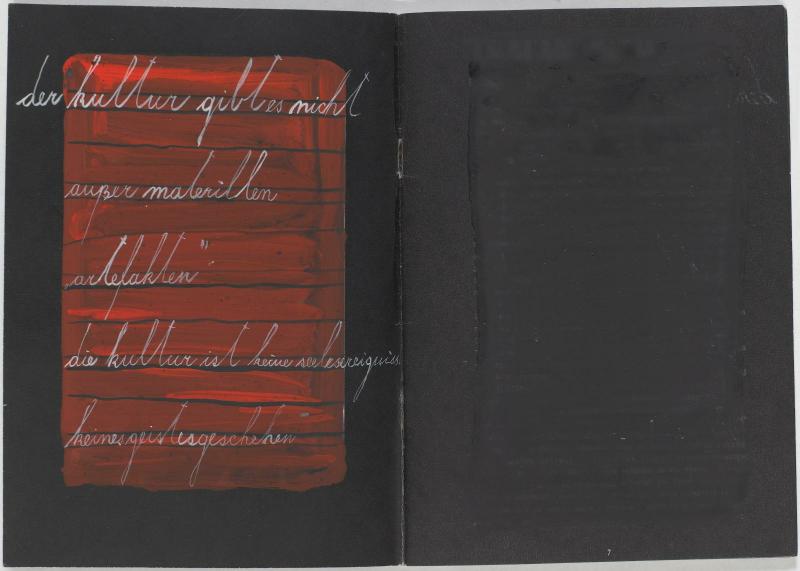 der kultur gibt es nicht
außer materillen
„artefakten"
die kultur ist keine seelesereigniss
keines geistesgeschehen
7